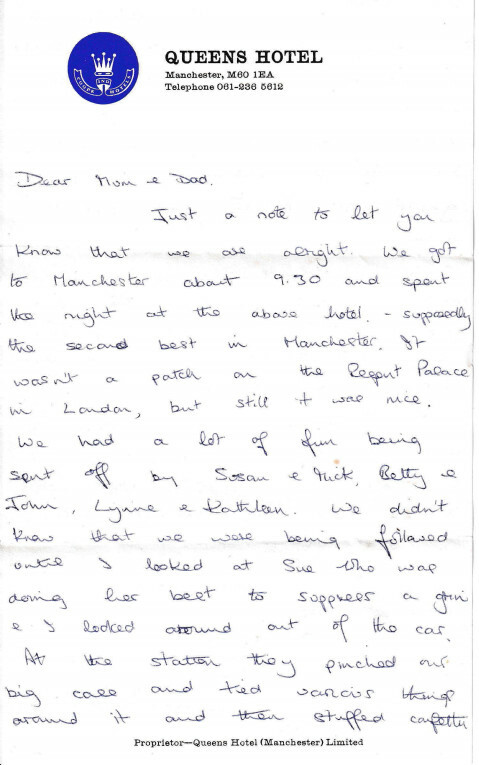 QUEENS HOTEL
Manchester, M60 1EA
Telephone 061-236 5612
COUPE IND HOTELS
Dear Mum & Dad.
Just a note to let you
know that we are alright. We got
to Manchester about 9.30 and spent
the night at the above hotel. - supposedly
the second best in Manchester. It
wasn't a patch on the Regent Palace
in London, but still it was nice.
We had a lot of fun being
sent off by Susan & Mick, Betty &
John, Lynne & Kathleen. We didn't
know that we were being followed
until I looked at Sue who was
doing her best to suppress a grin
& I looked around out of the car.
At the station they pinched our
big case and tied various things
around it and then stuffed confetti
Proprietor—Queens Hotel (Manchester) Limited